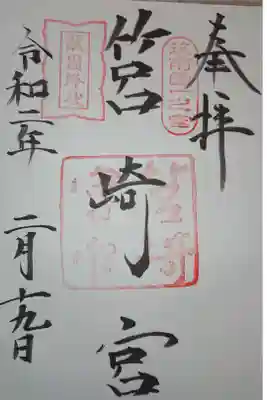 奉拝
筑前國一之宮
筥崎宮
敵國降伏
令和二年 二月十九日